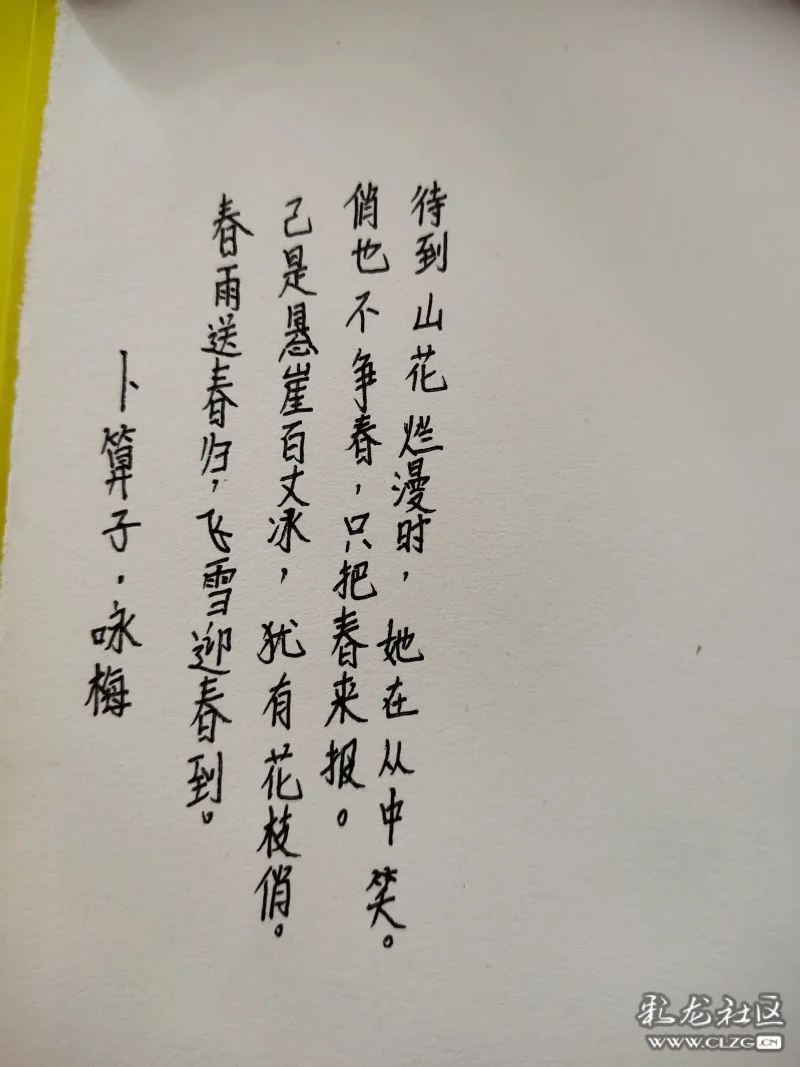 卜算子·咏梅
春雨送春归，飞雪迎春到。
己是悬崖百丈冰，犹有花枝俏。
俏也不争春，只把春来报。
待到山花烂漫时，她在从中笑。
彩龙社区
WWW.CLZG.CN